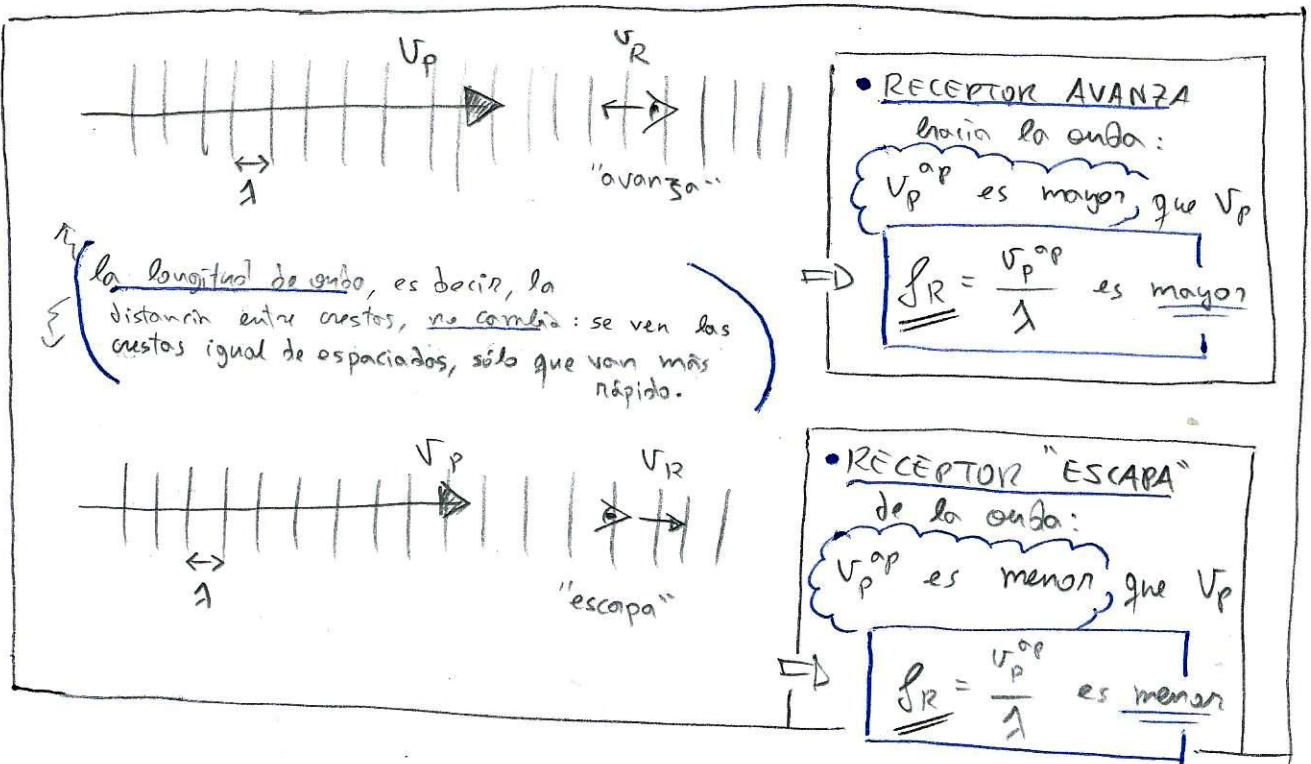 V_P
V_R
λ
"avanza"
• RECEPTOR AVANZA
hacia la onda:
V_P^ap es mayor, que V_P
⇒ f_R = V_P^ap / λ es mayor
la longitud de onda, es decir, la
distancia entre crestas, no cambia: se ven las
crestas igual de espaciadas, sólo que van más
rápido.
V_P
V_R
λ
"escapa"
• RECEPTOR "ESCAPA"
de la onda:
V_P^ap es menor, que V_P
⇒ f_R = V_P^ap / λ es menor